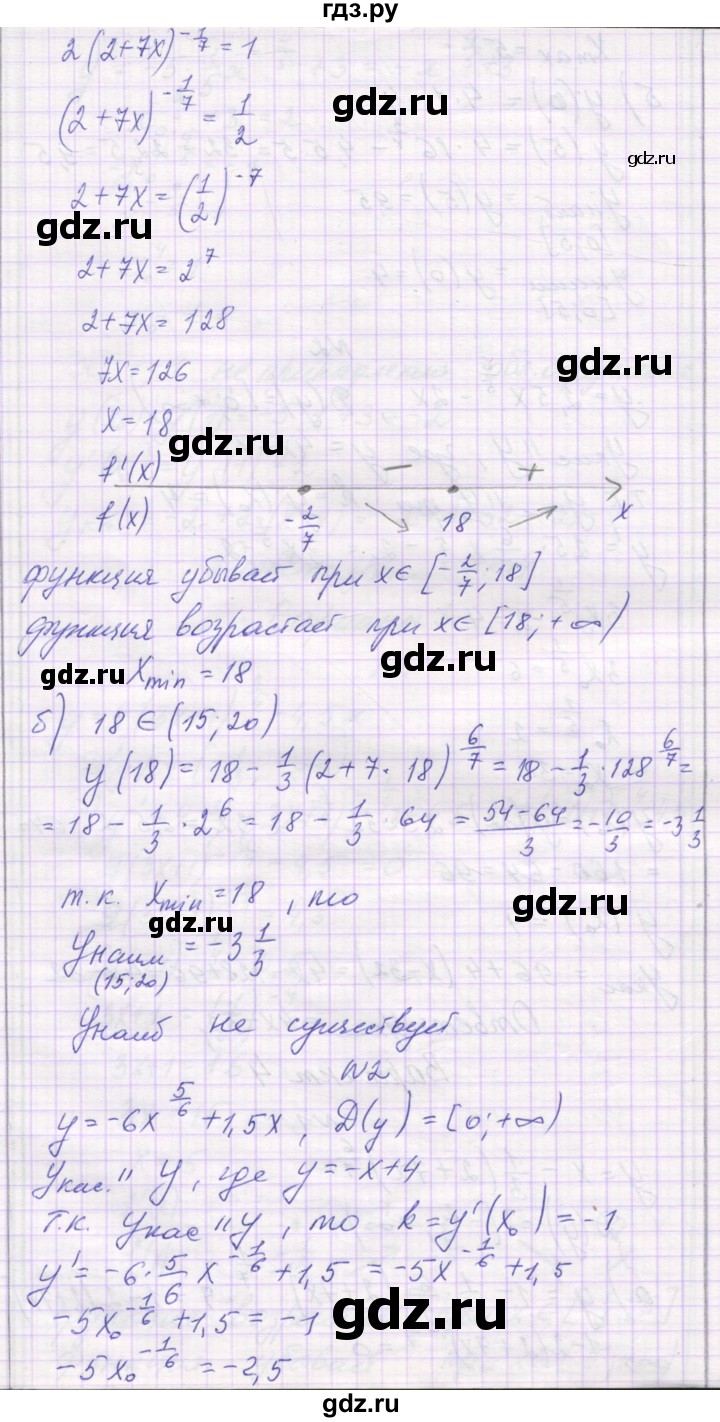 гдз.ру
2(2+7x)^{-1/7} = 1
(2+7x)^{-1/7} = 1/2
gdz.ru
gdz.ru
2+7x = (1/2)^{-7}
gdz.ru
2+7x = 2^7
2+7x = 128
gdz.ru
7x = 126
x = 18
gdz.ru
f'(x) − +
f(x) -2/7 18 x
функция убывает при x∈[-2/7; 18]
функция возрастает при x∈[18; +∞)
gdz.ru
gdz.ru
x_min = 18
б) 18∈(15; 20)
y(18) = 18 - 1/3 (2+7·18)^{6/7} = 18 - 1/3 · 128^{6/7} =
= 18 - 1/3 · 2^6 = 18 - 1/3 · 64 = (54-64)/3 = -10/3 = -3 1/3
т.к. x_min = 18, то
gdz.ru
gdz.ru
y наим = -3 1/3
(15; 20)
y наиб не существует
N2
y = -6x^{5/6} + 1,5x, D(y) = [0; +∞)
y кас. || y, где y = -x+4
т.к. y кас || y, то k = y'(x₀) = -1
y' = -6 · 5/6 x^{-1/6} + 1,5 = -5x^{-1/6} + 1,5
-5x₀^{-1/6} + 1,5 = -1
gdz.ru
-5x₀^{-1/6} = -2,5
gdz.ru